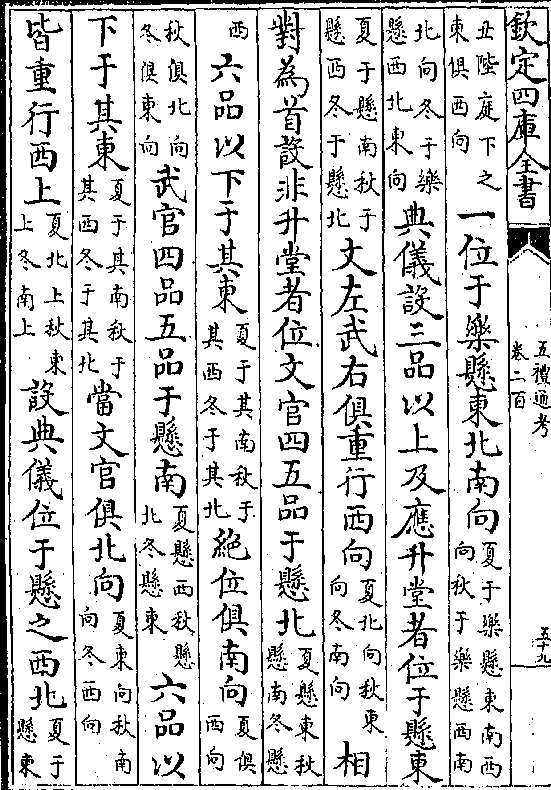 欽定四庫全書
五禮通考
卷二百
五十九
丑陛庭下之東俱西向一位于樂懸東北南向夏于樂懸東南西向秋于樂懸西南
北向冬于樂懸西北東向典儀設三品以上及應升堂者位于懸東
夏于懸南秋于懸西冬于懸北文左武右俱重行西向夏北向秋東向冬南向相
對為首設非升堂者位文官四五品于懸北夏懸東秋懸南冬懸
西六品以下于其東夏于其南秋于其西冬于其北絶位俱南向夏俱西向
秋俱北向冬俱東向武官四品五品于懸南夏懸西秋懸北冬懸東六品以
下于其東夏于其南秋于其西冬于其北當文官俱北向夏東向秋南向冬西向
皆重行西上夏北上秋東上冬南上設典儀位于懸之西北夏于懸東